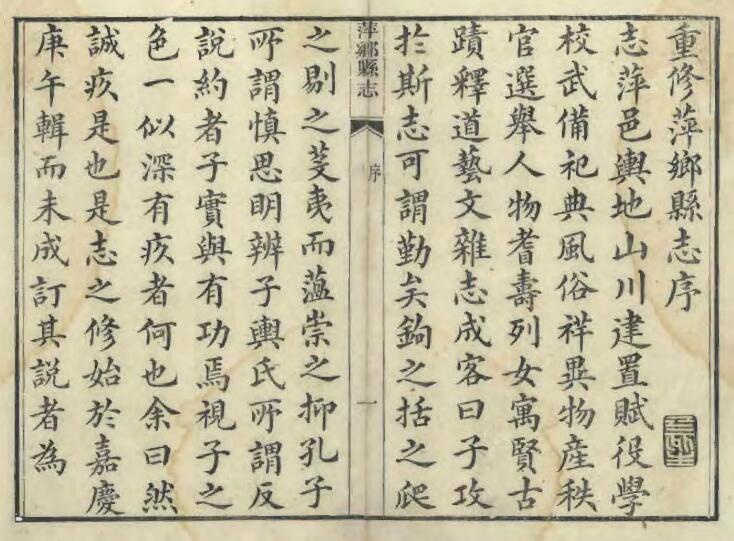 重修萍鄉縣志序
志萍邑輿地山川建置賦役學
校武備祀典風俗祥異物產秩
官選舉人物耆壽列女寓賢古
蹟釋道藝文雜志成客曰子攻
於斯志可謂勤矣鉤之括之爬
萍鄉縣志
序
一
之剔之芟夷而蘊崇之抑孔子
所謂慎思明辨子輿氏所謂反
說約者子實與有功焉視子之
色一似深有疚者何也余曰然
誠疚是也是志之修始於嘉慶
庚午輯而未成訂其説者為